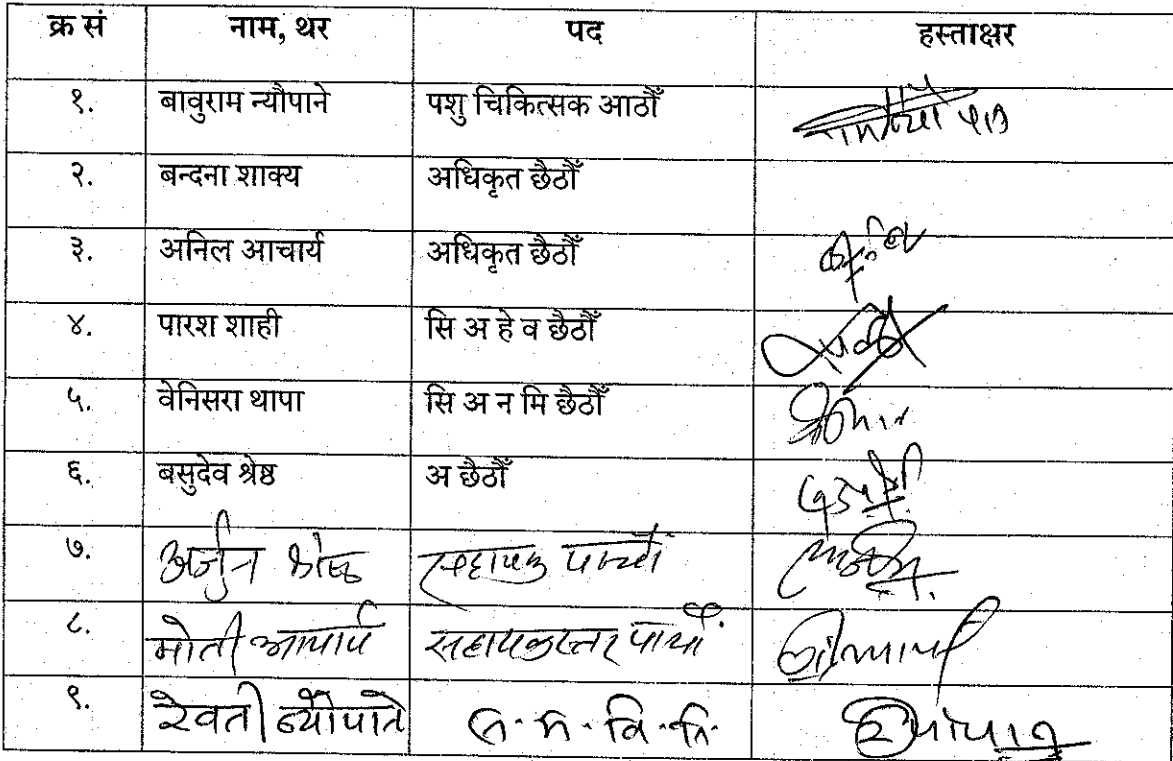 क्र सं नाम, थर पद हस्ताक्षर
१. बावुराम न्यौपाने पशु चिकित्सक आठौँ
२. बन्दना शाक्य अधिकृत छैठौँ
३. अनिल आचार्य अधिकृत छैठौँ
४. पारश शाही सि अ हे व छैठौँ
५. वेनिसरा थापा सि अ न मि छैठौँ
६. बसुदेव श्रेष्ठ अ छैठौँ
७. अर्जुन श्रेष्ठ सहायक पाचौं
८. मोती आचार्य सहायकस्तर पाचौं
९. रेवती न्यौपाने